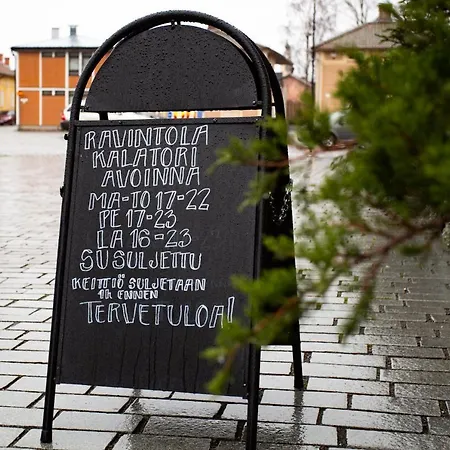 RAVINTOLA
KALATORI
AVOINNA
MA-TO 17-22
PE 17-23
LA 16-23
SU SULJETTU
KEITTIÖ SULJETAAN
1h ENNEN
TERVETULOA!